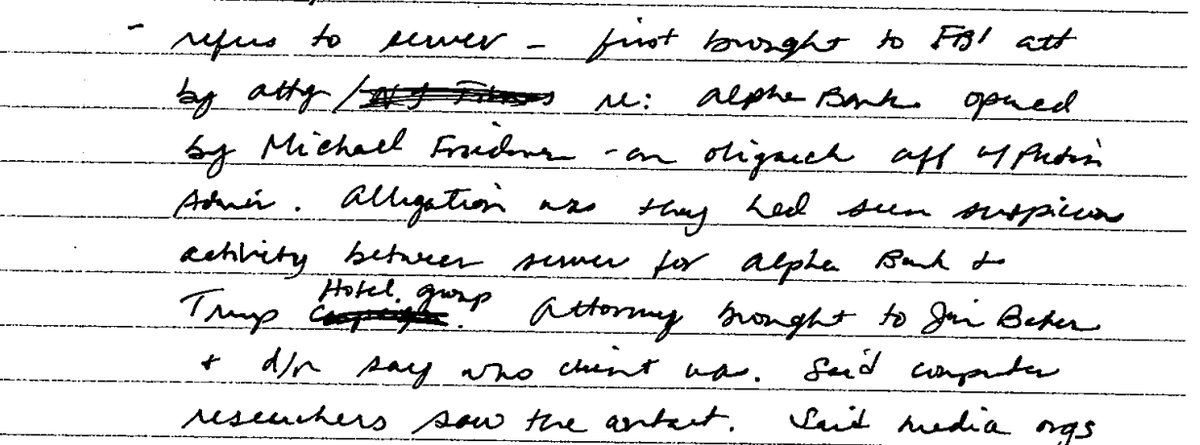 - refers to server - first brought to FBI att
by attg / NY Times re: Alpha Bank opened
by Michael Friedman - an oligarch aff w/ Putin
Admin. Allegation was they had seen suspicious
activity between server for Alpha Bank &
Trump Campaign Hotel group. Attorney brought to Jim Baker
+ d/n say who client was. Said computer
researchers saw the contact. Said media orgs